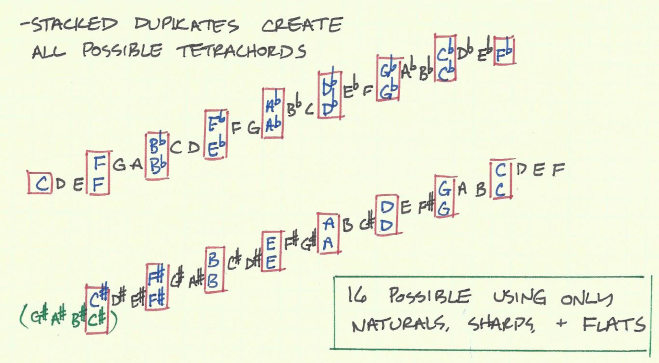 -STACKED DUPLICATES CREATE
ALL POSSIBLE TETRACHORDS
C D E F F G A B♭ B♭ C D E♭ E♭ F G A♭ A♭ B♭ C D♭ D♭ E♭ F G♭ G♭ A♭ B♭ C♭ C♭ D♭ E♭ F♭
(G# A# B# C# C#) D# E# F# F# G# A# B B C# D# E E F# G# A A B C# D D E F# G G A B C C D E F
16 POSSIBLE USING ONLY
NATURALS, SHARPS, + FLATS